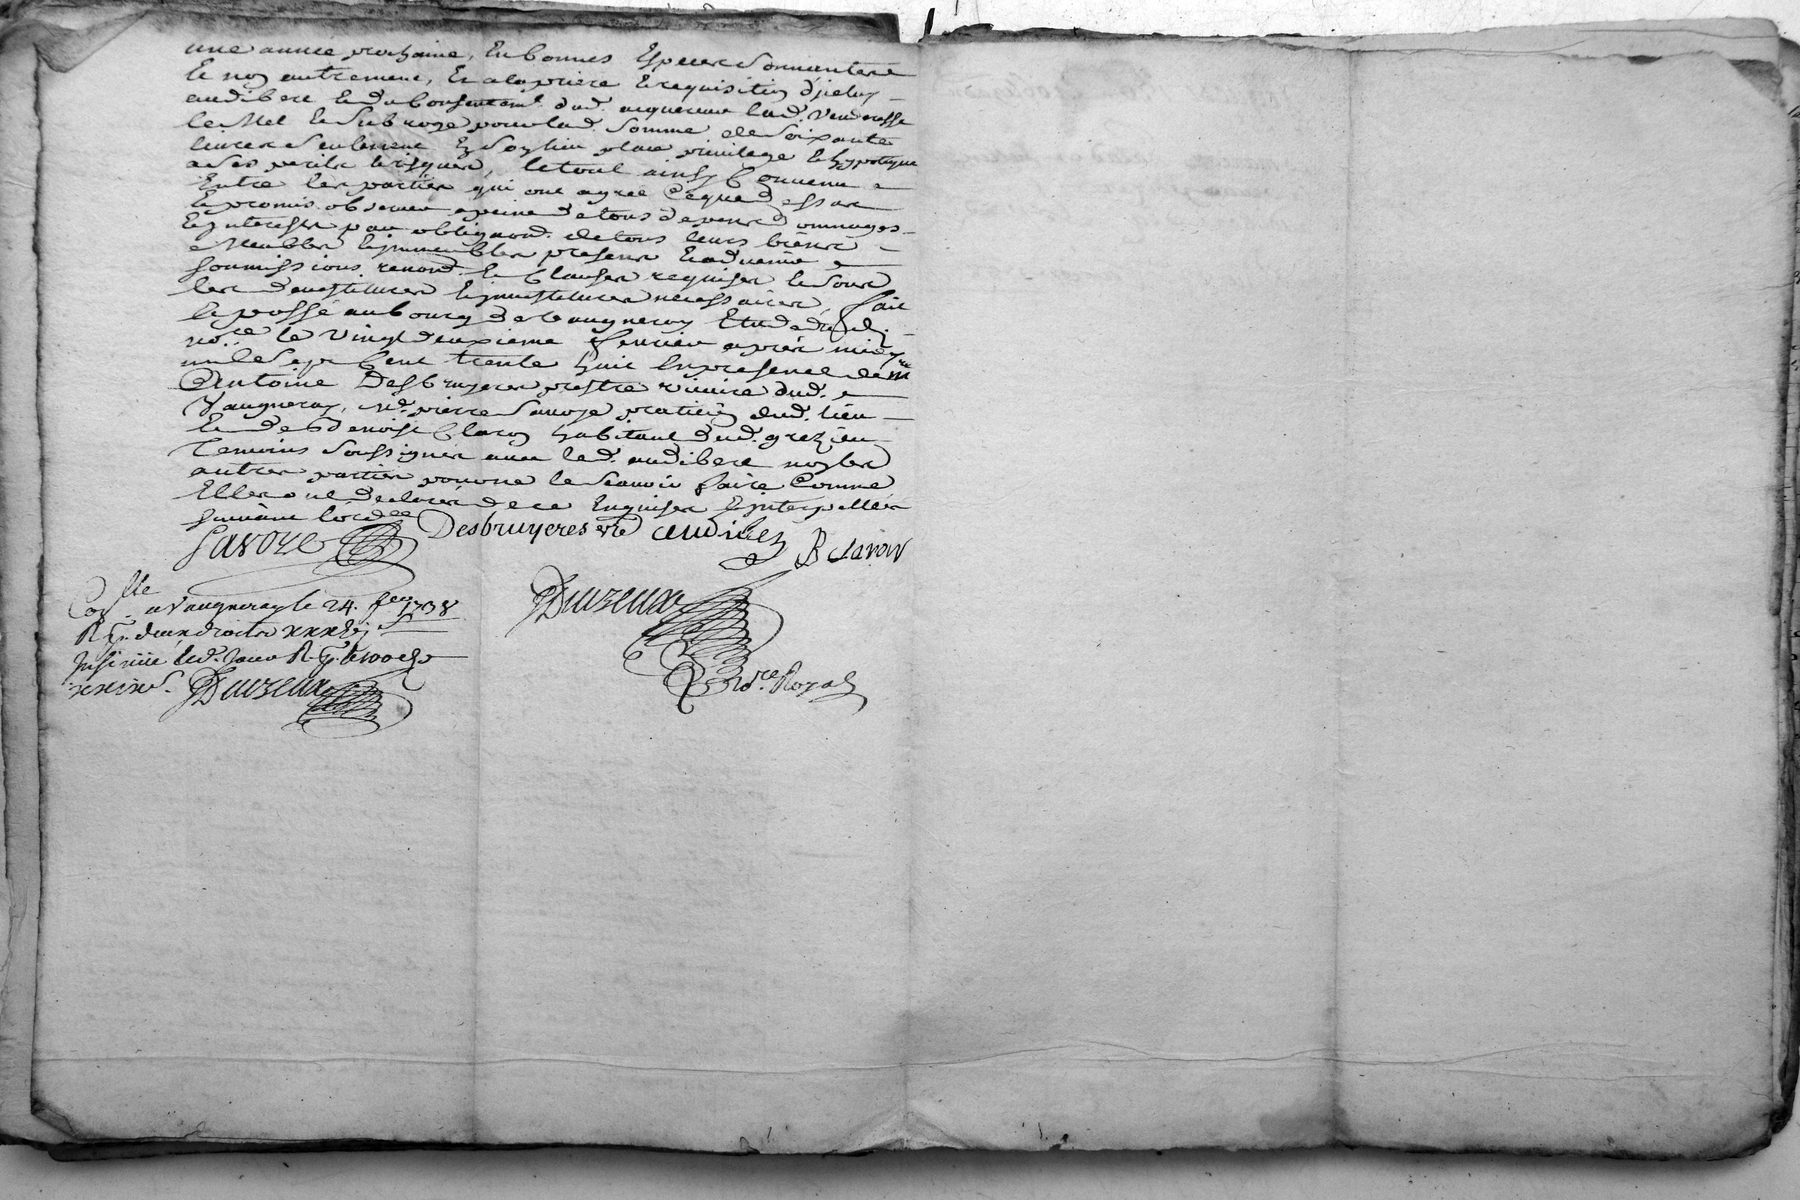 une année prochaine, En bonnes Especes Sonnantes
Et non autrement, Et a la priere Et requisition d'jceluy
audibert Et du Consentemt. dud. acquereur lad. venderesse
le Met Et Subroge pour lad. Somme de Soixante
livres Seulement En Son lieu place privilege Et hypoteque
a Ses perils Et risques, le tout ainsy Convenu
Entre les parties qui ont agreé Ce que dessus
Et promis observer a peine de tous depens dommages
Et jnterests par obligaon. de tous leurs biens
Meubles Et jmmeubles presens Et advenir
Soumissions, renon. Et Clauses requises,
les Et jnvestitures necessaires, fait
Et passé au bourg de Vaugneray Etude dud.
nore. le vingt deuxieme fevrier après midy
mil Sept Cent trente huit En presence de mre
Antoine Desbruyeres prestre vicaire dud.
Vaugneray, Me. pierre Savoye praticien dud. lieu
Et de Benoist Claron habitant dud. grezieu
Temoins Soussignés avec led. audibert non les
autres parties pour ne le Scavoir faire Comme
Elles ont declaré de ce Enquises Et jnterpellées
Suivant l'ordce
Savoye Desbruyeres vre audiber B Claron
Duizeux
Nore. Royal
Conllé a Vaugneray le 24. fev. 1738
R. deux droits
Insinué led. Jour R.
Duizeux